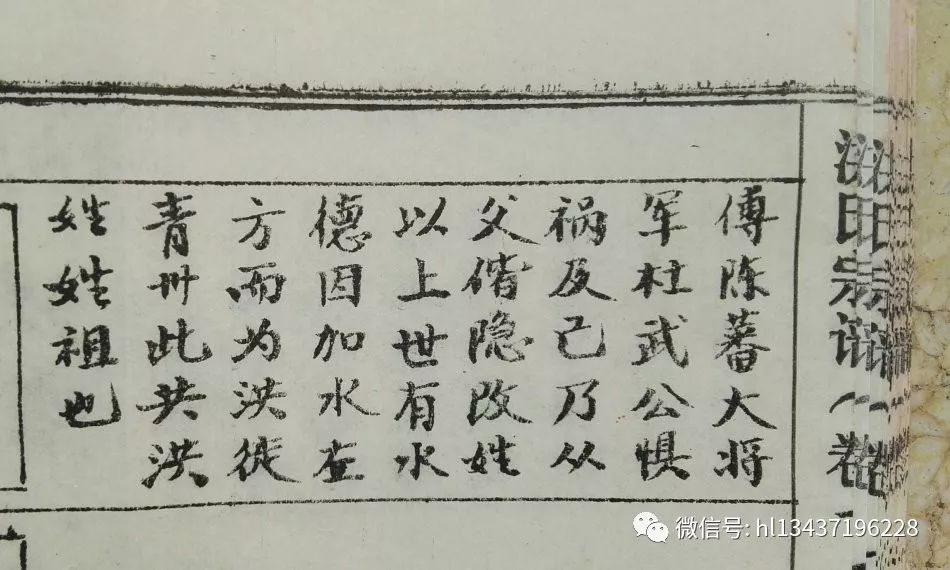 宗谱（卷
傅陈蕃大将
军杜武公惧
祸及己乃从
父偕隐改姓
以上世有水
德因加水在
方而为洪徙
青州此共洪
姓姓祖也
微信号: hl13437196228